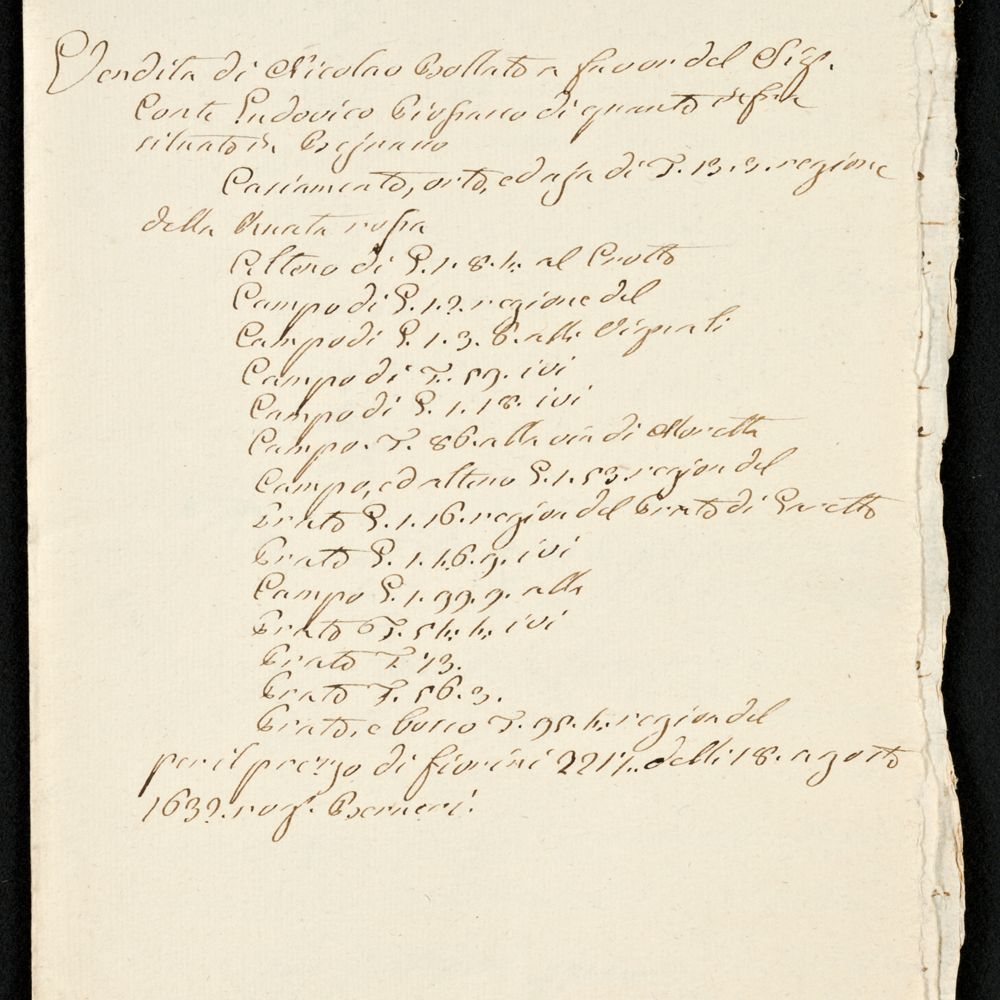 Vendita di Nicolao Bollato a favor del Sig.r
Conte Ludovico Piossasco di quanto infra
situato in
Casiamento, orto, ed aja di T. 13. 3. regione
della Crusta rossa
Alteno di G. 1. 8. 4. al Crotto
Campo di G. 1. 2. regione del
Campo di G. 1. 3. 8. alli
Campo di T. 59. ivi
Campo di G. 1. 18. ivi
Campo. T. 86. alla via di Moretta
Campo, ed alteno G. 1. 53. region del
Prato G. 1. 16. region del Prato di
Prato G. 1. 46. 9. ivi
Campo G. 1. 99. 9. alli
Prato T. 54. 4. ivi
Prato T. 73.
Prato T. 56. 3.
Prato, e bosco T. 95. 4. region del
per il prezzo di fiorini delli 18. agosto
1632. rog.